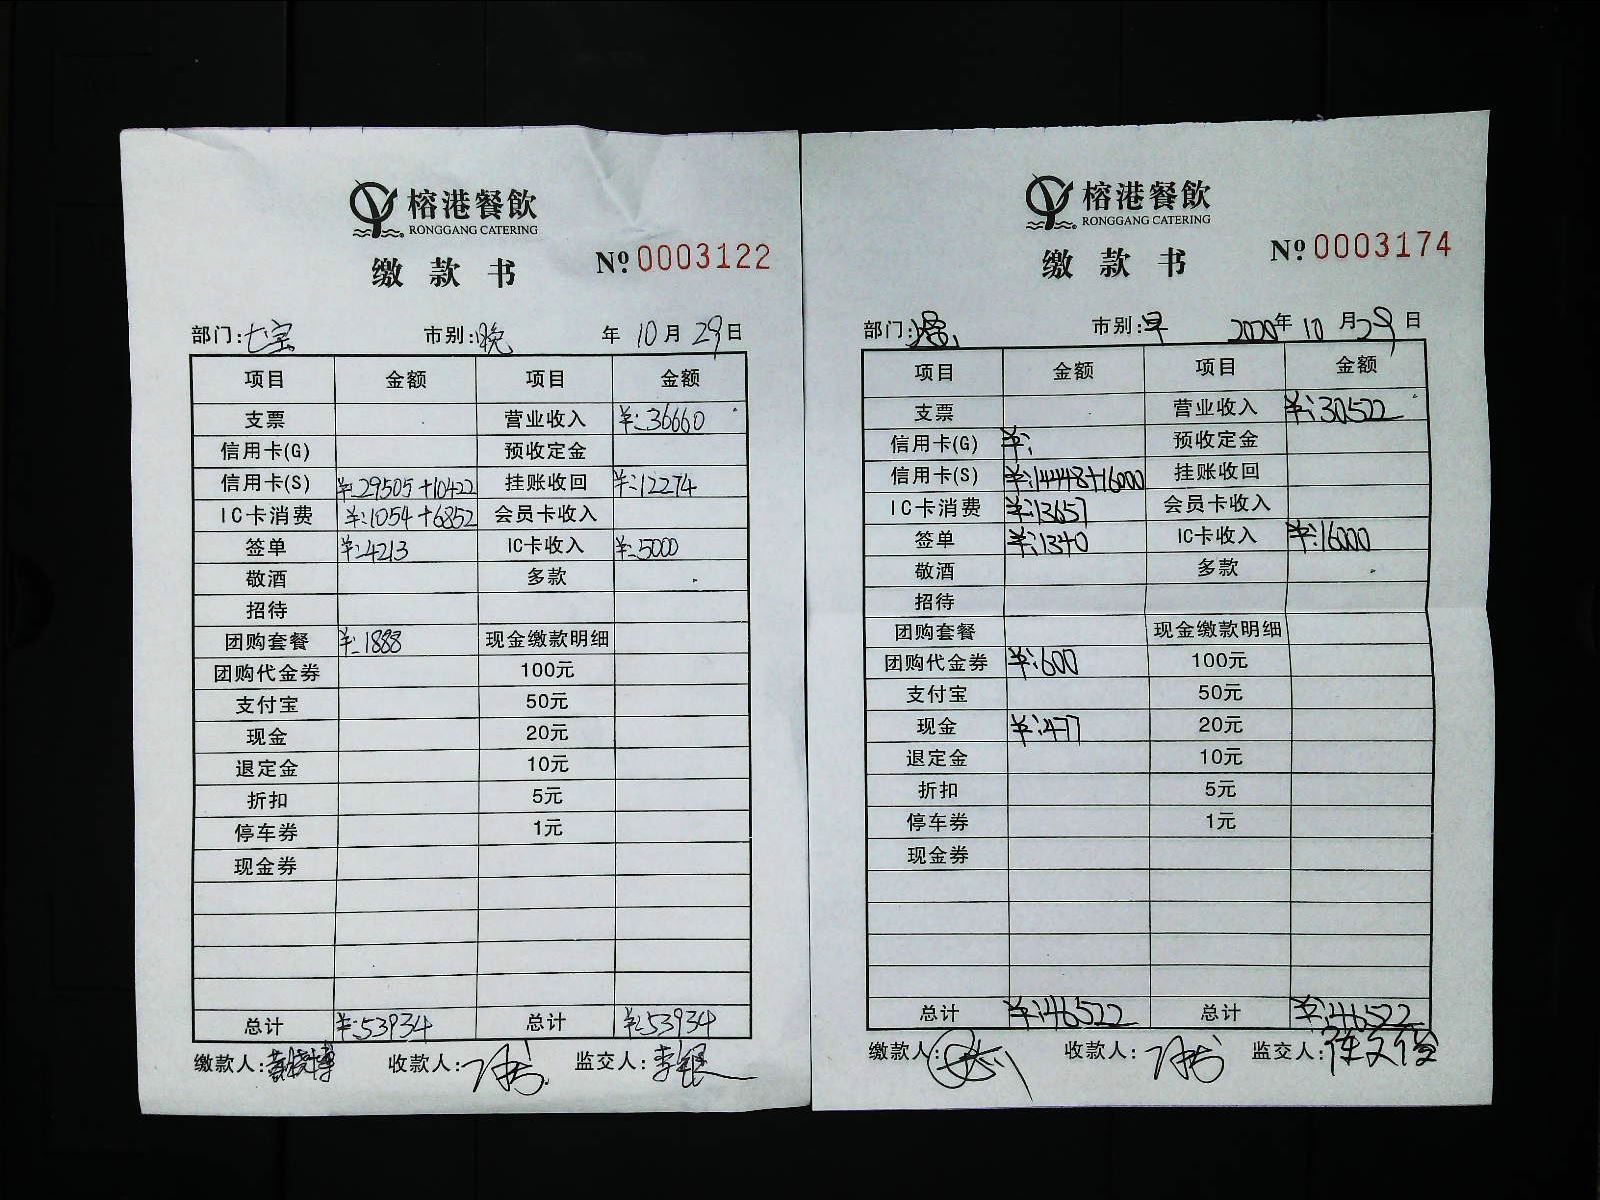 榕港餐飲
RONGGANG CATERING
缴款书
№ 0003122
部门:七宝 市别:晚 年 10月 29日
项目 金额 项目 金额
支票 营业收入 ¥:36660
信用卡(G) 预收定金
信用卡(S) ¥:29505+10422 挂账收回 ¥:12274
IC卡消费 ¥:1054+6852 会员卡收入
签单 ¥:4213 IC卡收入 ¥:5000
敬酒 多款
招待
团购套餐 ¥:1888 现金缴款明细
团购代金券 100元
支付宝 50元
现金 20元
退定金 10元
折扣 5元
停车券 1元
现金券
总计 ¥:53934 总计 ¥:53934
缴款人: 收款人: 监交人:李银
榕港餐飲
RONGGANG CATERING
缴款书
№ 0003174
部门: 市别:早 2020年 10月 29日
项目 金额 项目 金额
支票 营业收入 ¥:30522
信用卡(G) ¥: 预收定金
信用卡(S) ¥:14448+16000 挂账收回
IC卡消费 ¥:13657 会员卡收入
签单 ¥:1340 IC卡收入 ¥:16000
敬酒 多款
招待
团购套餐 现金缴款明细
团购代金券 ¥:600 100元
支付宝 50元
现金 ¥:477 20元
退定金 10元
折扣 5元
停车券 1元
现金券
总计 ¥:46522 总计 ¥:46522
缴款人: 收款人: 监交人: